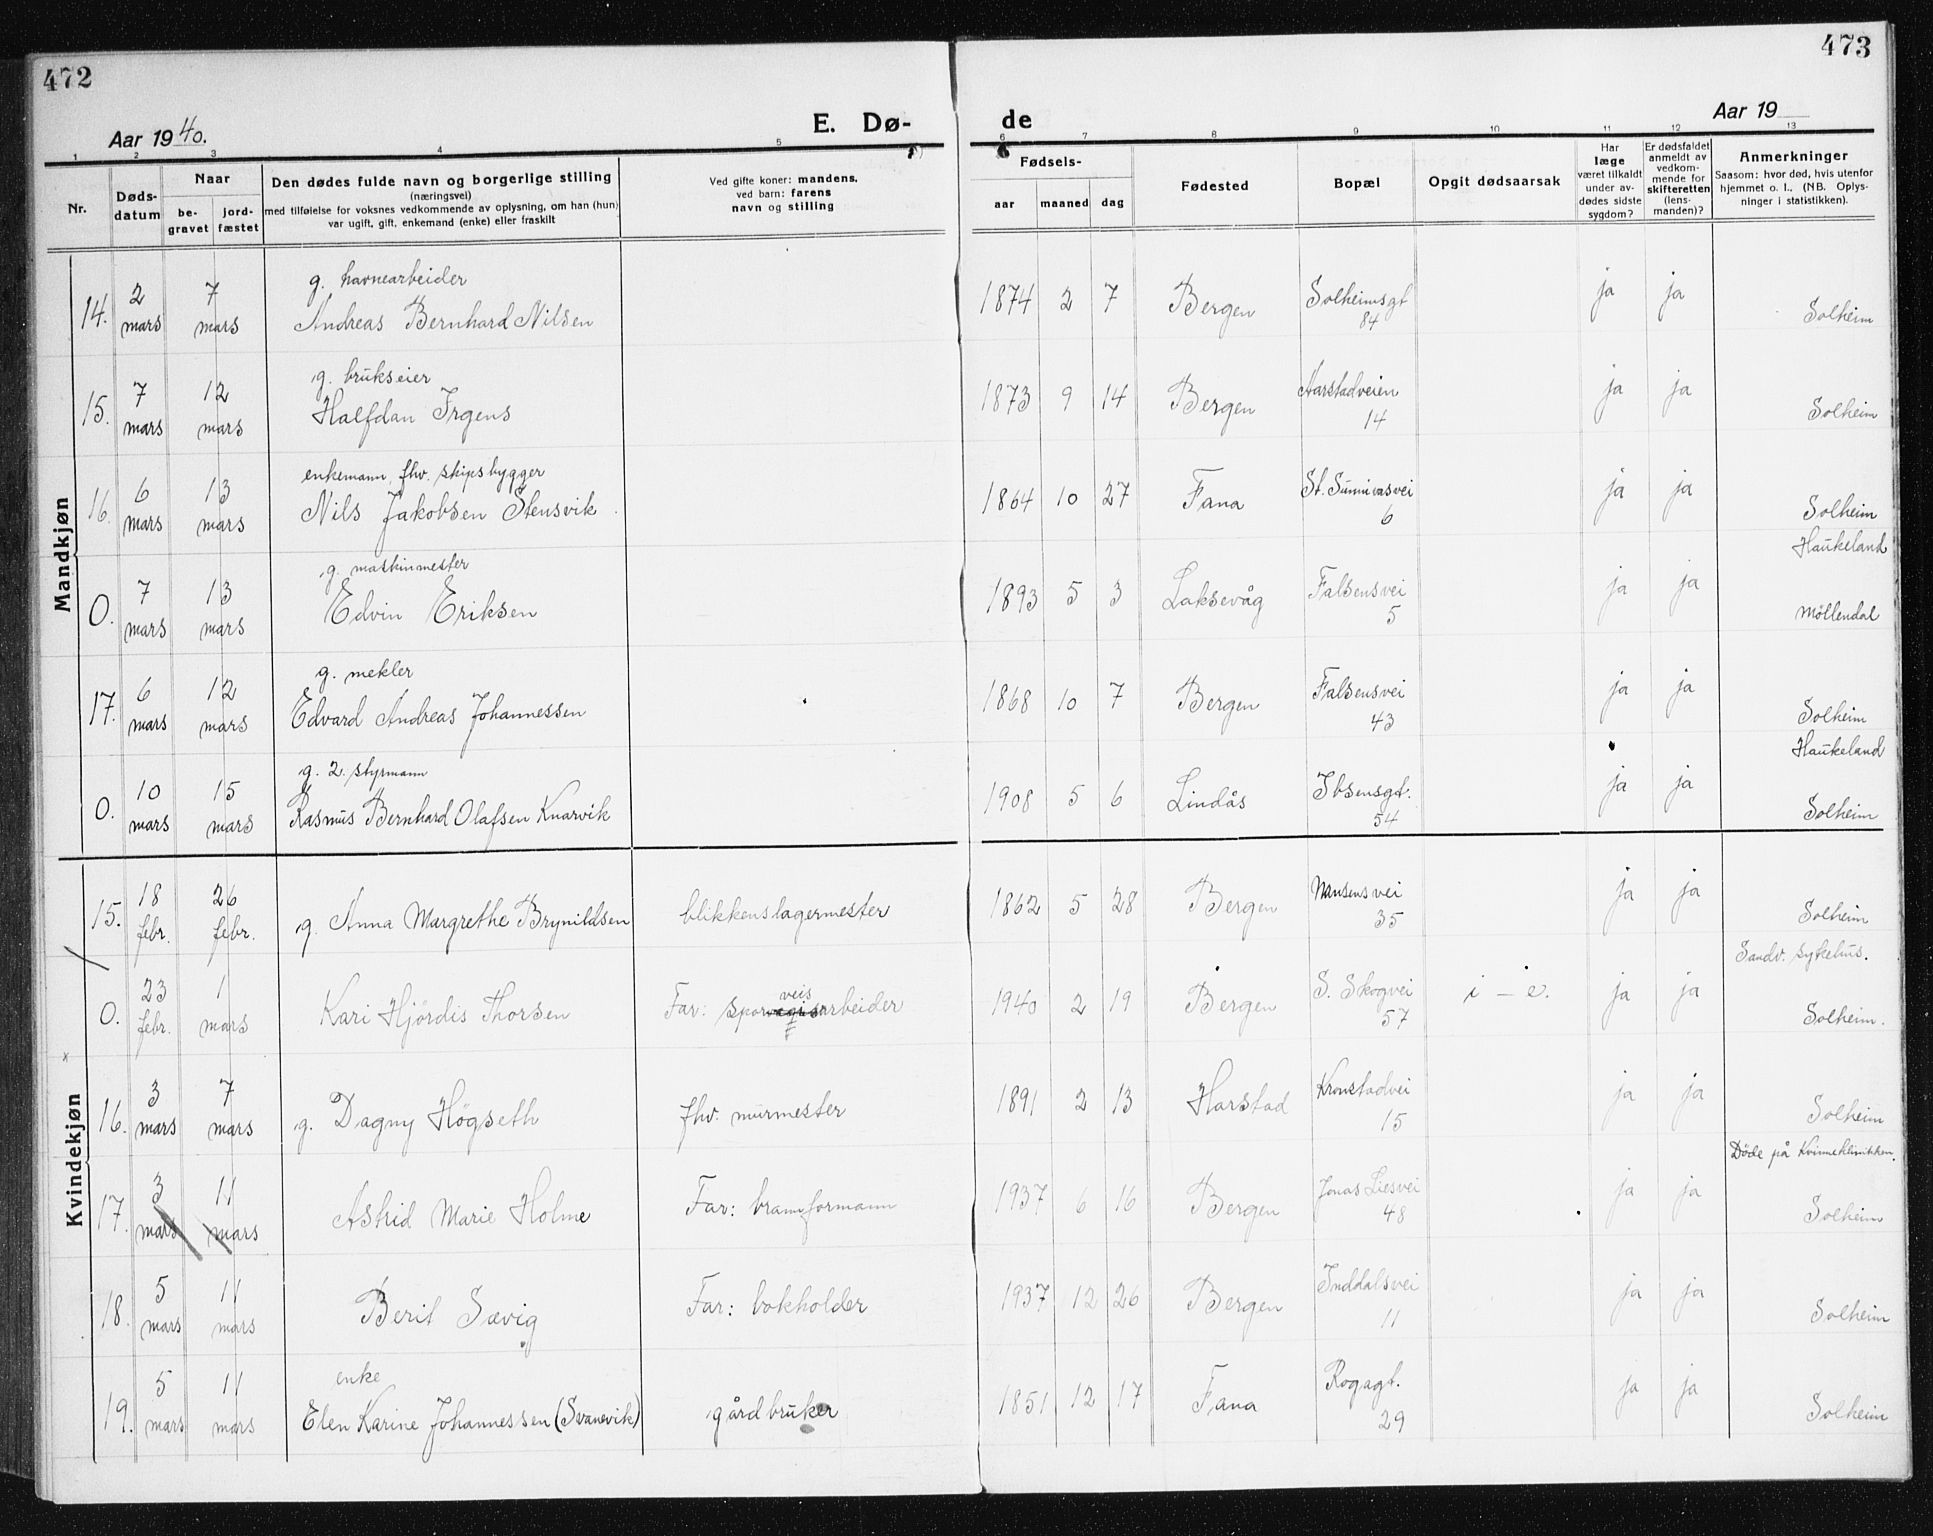 472
473
Aar 1940.
E. Dø-
de
Aar 19
1 2 3 4 5 6 7 8 9 10 11 12 13
Nr.
Døds-
datum
Naar
be-
gravet
jord-
fæstet
Den dødes fulde navn og borgerlige stilling
(næringsvei)
med tilføielse for voksnes vedkommende av oplysning, om han (hun)
var ugift, gift, enkemand (enke) eller fraskilt
Ved gifte koner: mandens,
ved barn: farens
navn og stilling
Fødsels-
aar maaned dag
Fødested
Bopæl
Opgit dødsaarsak
Har
læge
været tilkaldt
under av-
dødes sidste
sygdom?
Er dødsfaldet
anmeldt av
vedkom-
mende for
skifteretten
(lens-
manden)?
Anmerkninger
Saasom: hvor død, hvis utenfor
hjemmet o. l., (NB. Oplys-
ninger i statistikken).
Mandkjøn
g. havnearbeider
14. 2 mars 7 mars Andreas Bernhard Nilsen 1874 2 7 Bergen Solheimsgt 84 ja ja Solheim
g. brukseier
15. 7 mars 12 mars Halfdan Irgens 1873 9 14 Bergen Aarstadveien 14 ja ja Solheim
enkemann, fhv. skipsbygger
16. 6 mars 13 mars Nils Jakobsen Stensvik 1864 10 27 Fana St. Sunnivasvei 6 ja ja Solheim
g. maskinmester Haukeland
0. 7 mars 13 mars Edvin Eriksen 1893 5 3 Laksevåg Falsensvei 5 ja ja Möllendal
g. mekler
17. 6 mars 12 mars Edvard Andreas Johannessen 1868 10 7 Bergen Falsensvei 43 ja ja Solheim
g. 2. styrmann Haukeland
0. 10 mars 15 mars Rasmus Bernhard Olafsen Knarvik 1908 5 6 Lindås Ibsensgt. 54 ja ja Solheim
Kvindekjøn
15. 18 febr. 26 febr. g. Anna Margrethe Brynildsen blikkenslagermester 1862 5 28 Bergen Nansensvei 35 ja ja Solheim
Sandv. sykehus.
0. 23 febr. 1 mars Kari Hjördis Thorsen Far: sporveisarbeider 1940 2 19 Bergen S. Skogvei 57 i - e. ja ja Solheim.
16. 3 mars 7 mars g. Dagny Högseth fhv. murmester 1891 2 13 Harstad Kronstadvei 15 ja ja Solheim
Döde på Kvinneklinikken.
17. 3 mars 11 mars Astrid Marie Holme Far: formann 1937 6 16 Bergen Jonas Liesvei 48 ja ja Solheim
18. 5 mars 11 mars Berit Sævig Far: bokholder 1937 12 26 Bergen Inddalsvei 11 ja ja Solheim
enke
19. 5 mars 11 mars Elen Karine Johannessen (Svanevik) gårdbruker 1851 12 17 Fana Rogagt. 29 ja ja Solheim